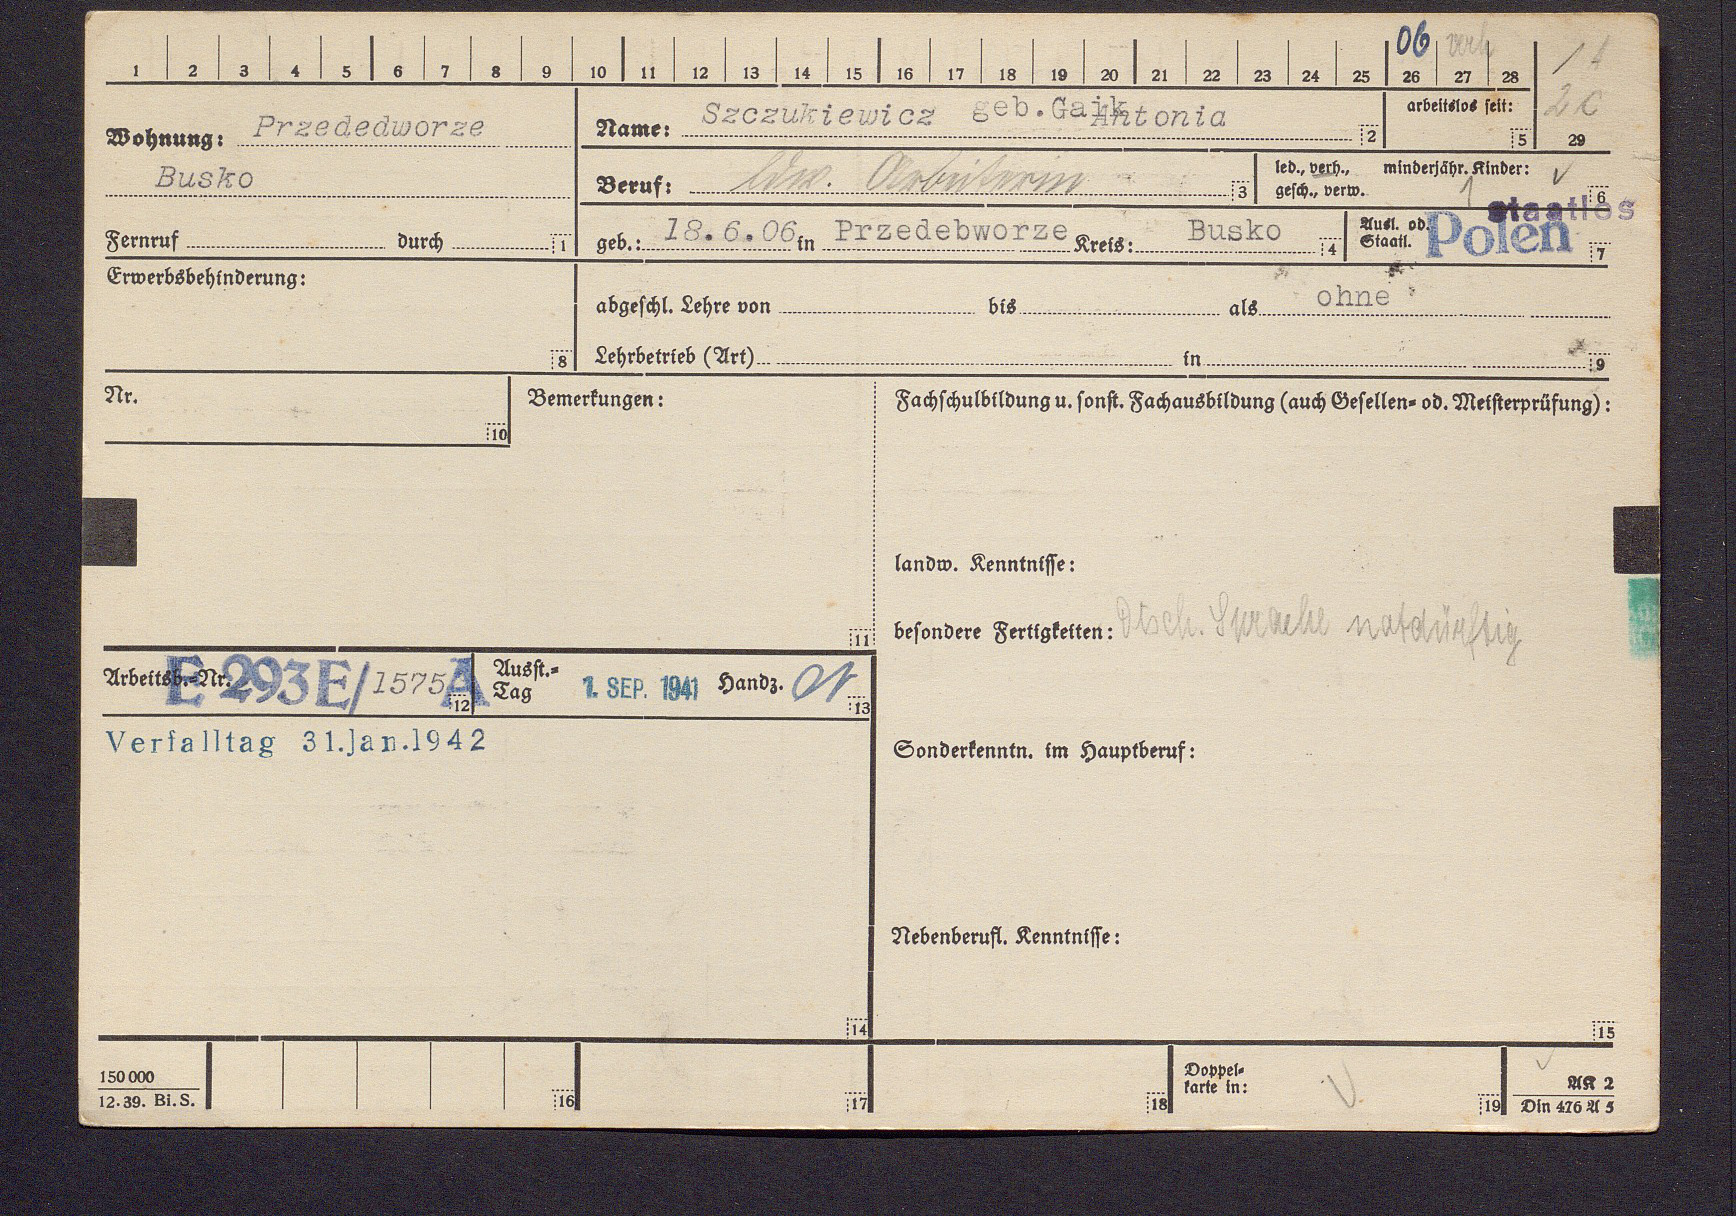 06 verh
1 2 3 4 5 6 7 8 9 10 11 12 13 14 15 16 17 18 19 20 21 22 23 24 25 26 27 28
2c
29
Wohnung: Przededworze
Busko
Fernruf durch 1
Name: Szczukiewicz geb.Gaik Antonia 2
arbeitslos seit: 5
Beruf: ldw. Arbeiterin 3
led., verh., minderjähr. Kinder: 1
gesch., verw. 6
geb.: 18.6.06 in Przedebworze Kreis: Busko 4
Ausl. od. Staatl. Polen staatlos 7
Erwerbsbehinderung: 8
abgeschl. Lehre von bis als ohne
Lehrbetrieb (Art) in 9
Nr. 10
Bemerkungen: 11
Fachschulbildung u. sonst. Fachausbildung (auch Gesellen- od. Meisterprüfung):
landw. Kenntnisse:
besondere Fertigkeiten: Dtsch. Sprache notdürftig
Arbeitsb.-Nr. E 293 E/1575 A 12
Ausst.-Tag 1. SEP. 1941 Handz. 13
Verfalltag 31.Jan.1942
Sonderkenntn. im Hauptberuf:
Nebenberufl. Kenntnisse:
14
15
150 000
12.39. Bi.S.
16
17
18
Doppel-
karte in:
19
AK 2
Din 476 A 5